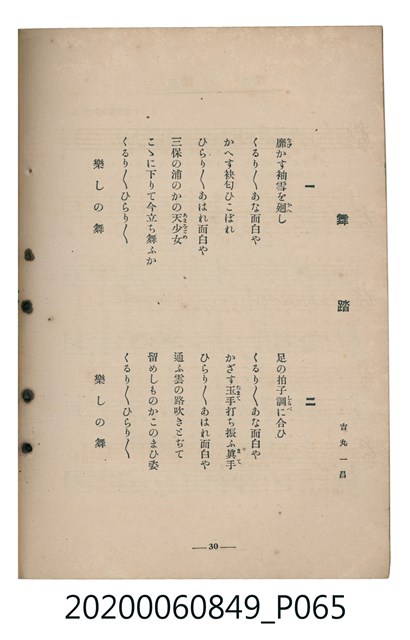 舞踏
吉丸一昌
一
靡かす袖雪を廻し
くるり〳〵あな面白や
かへす袂匂ひこぼれ
ひらり〳〵あはれ面白や
三保の浦のかの天少女
こゝに下りて今立ち舞ふか
くるり〳〵ひらり〳〵
樂しの舞
二
足の拍子調に合ひ
くるり〳〵あな面白や
かざす玉手打ち振ふ眞手
ひらり〳〵あはれ面白や
通ふ雲の路吹きとぢて
留めしものかこのまひ姿
くるり〳〵ひらり〳〵
樂しの舞
— 30 —
20200060849_P065